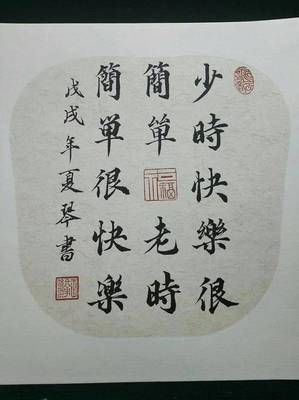 少時快樂很
簡单老時
簡单很快楽
戊戌年夏琴書